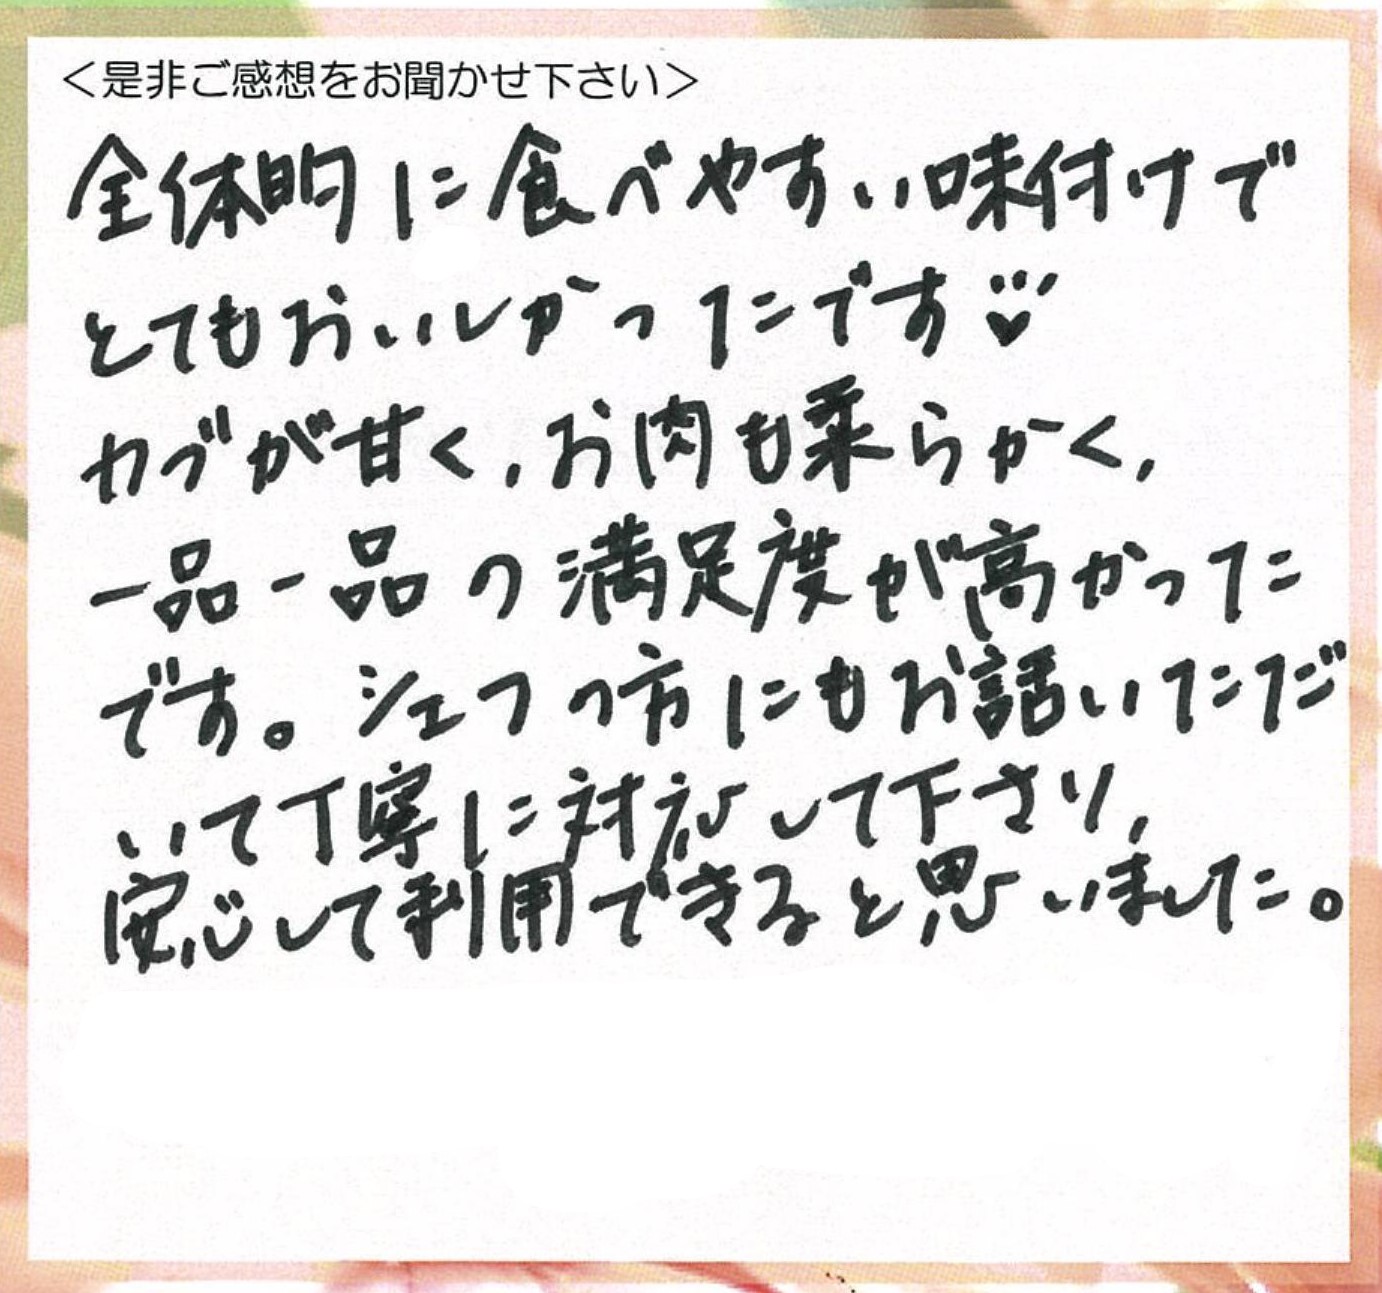 ＜是非ご感想をお聞かせ下さい＞
全体的に食べやすい味付けで
とてもおいしかったです♥
カブが甘く,お肉も柔らかく,
一品一品の満足度が高かった
です。シェフの方にもお話いただ
いて丁寧に対応して下さり,
安心して利用できると思いました。